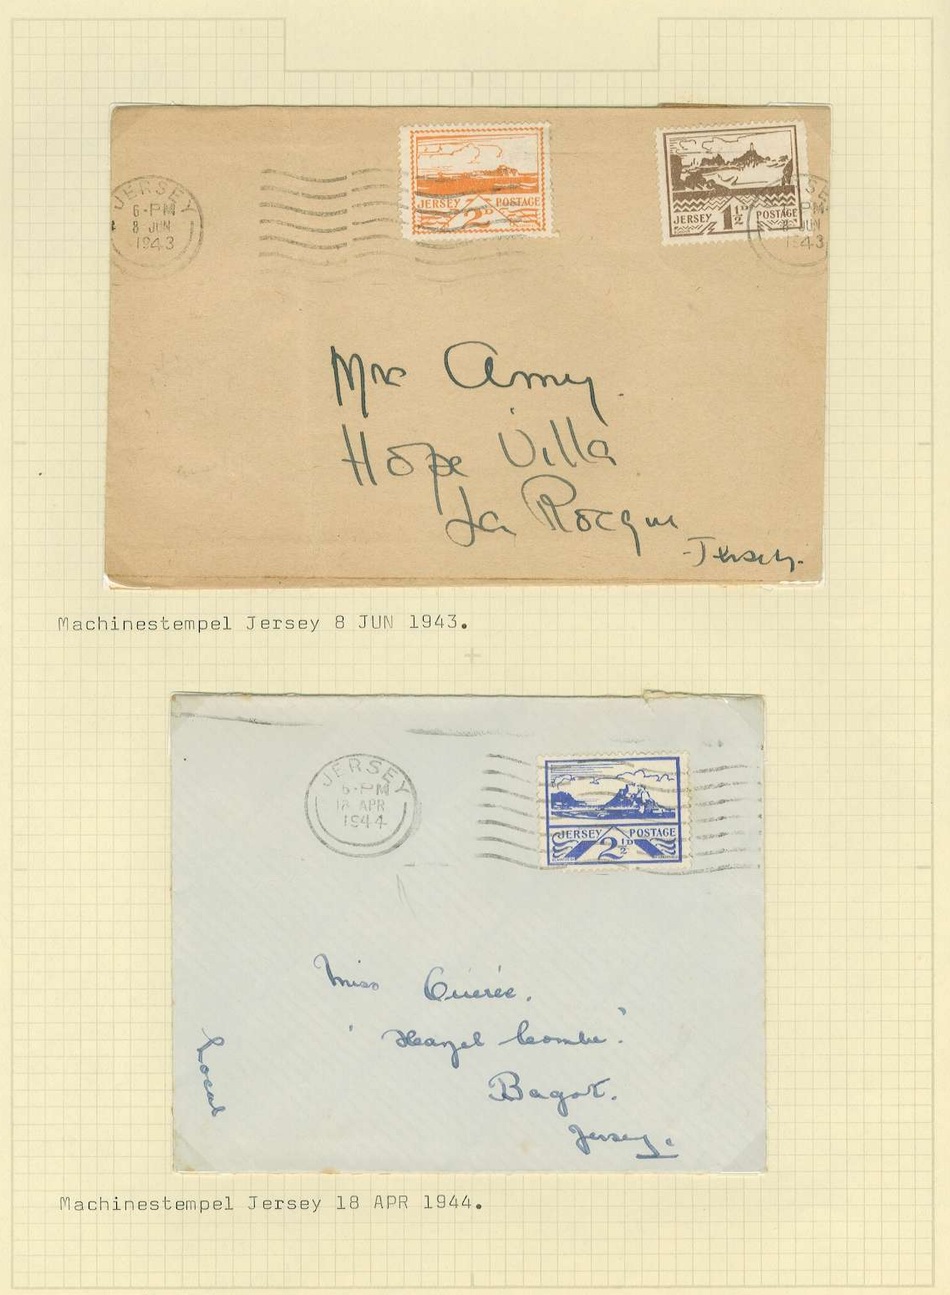 JERSEY
6-PM
8 JUN
1943
JERSEY POSTAGE
2D
JERSEY POSTAGE
1½D
SE
PM
8 JUN
1943
Mrs Amy.
Hope Villa
La Rocque
-Jersey-
Machinestempel Jersey 8 JUN 1943.
JERSEY
6-PM
18 APR
1944
JERSEY POSTAGE
2½D
Miss Quérée.
'Hazel Combe'.
Bagot.
Jersey.
Local
Machinestempel Jersey 18 APR 1944.